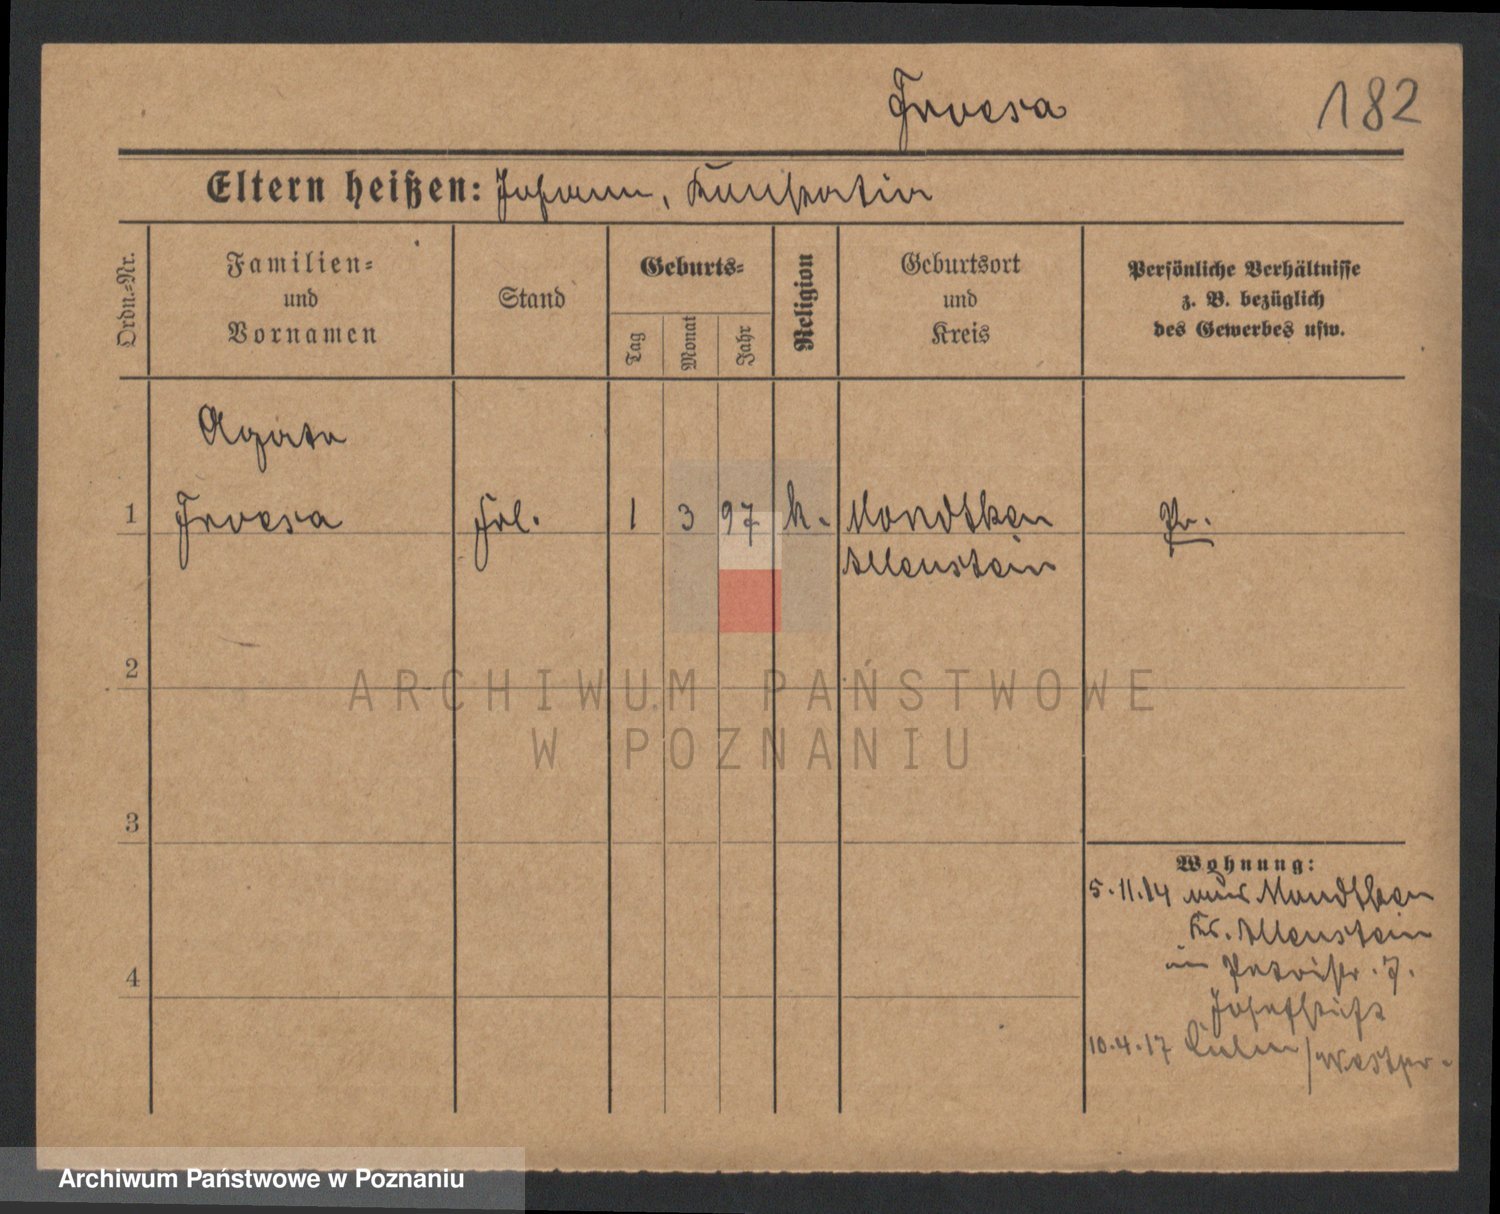 182
Eltern heißen: Johann,
Ordn.-Nr.
Familien-
und
Vornamen
Stand
Geburts-
Tag
Monat
Jahr
Religion
Geburtsort
und
Kreis
Persönliche Verhältnisse
z. B. bezüglich
des Gewerbes usw.
Agata
1
Frl.
1
3
97
k.
Mondtken
Allenstein
Pr.
2
ARCHIWUM PAŃSTWOWE
W POZNANIU
3
Wohnung:
5.11.14 aus Mondtken
Kr. Allenstein
in Petristr. 7.
Josefstift
4
10.4.17 Culm / Westpr.
Archiwum Państwowe w Poznaniu